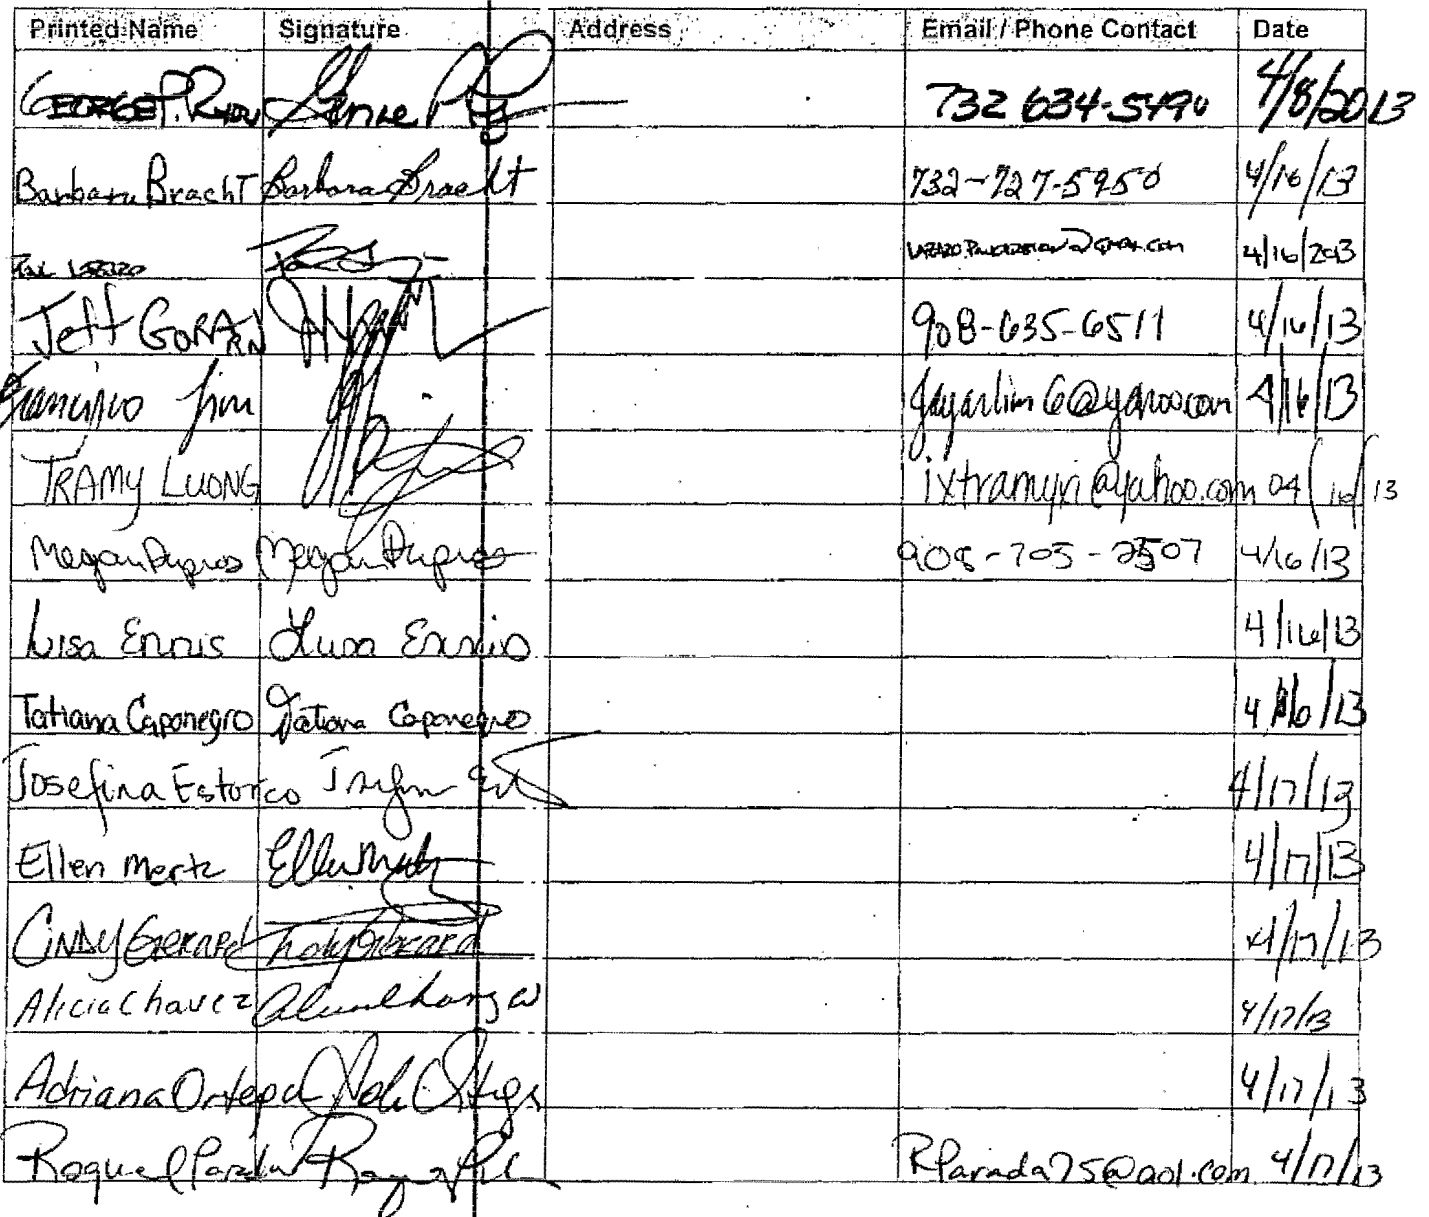 Printed Name Signature Address Email / Phone Contact Date
GEORGE P. 732 634-5490 4/8/2013
Barbara Bracht Barbara Bracht 732-727-5950 4/16/13
4/16/2013
Jeff 908-635-6511 4/16/13
Francisco Jim jayarlim6@yahoo.com 4/16/13
TRAMY LUONG @yahoo.com 04/16/13
Megan Dupros Megan Dupros 908-705-2507 4/16/13
Lisa Ennis Lisa Ennis 4/16/13
Tatiana Caponegro Tatiana Caponegro 4/16/13
Josefina Estorco 4/17/13
Ellen Mertz Ellen Mertz 4/17/13
CINDY GERARD Cindy Gerard 4/17/13
Alicia Chavez 4/17/13
Adriana Ortega 4/17/13
Raquel Parada RParada75@aol.com 4/17/13